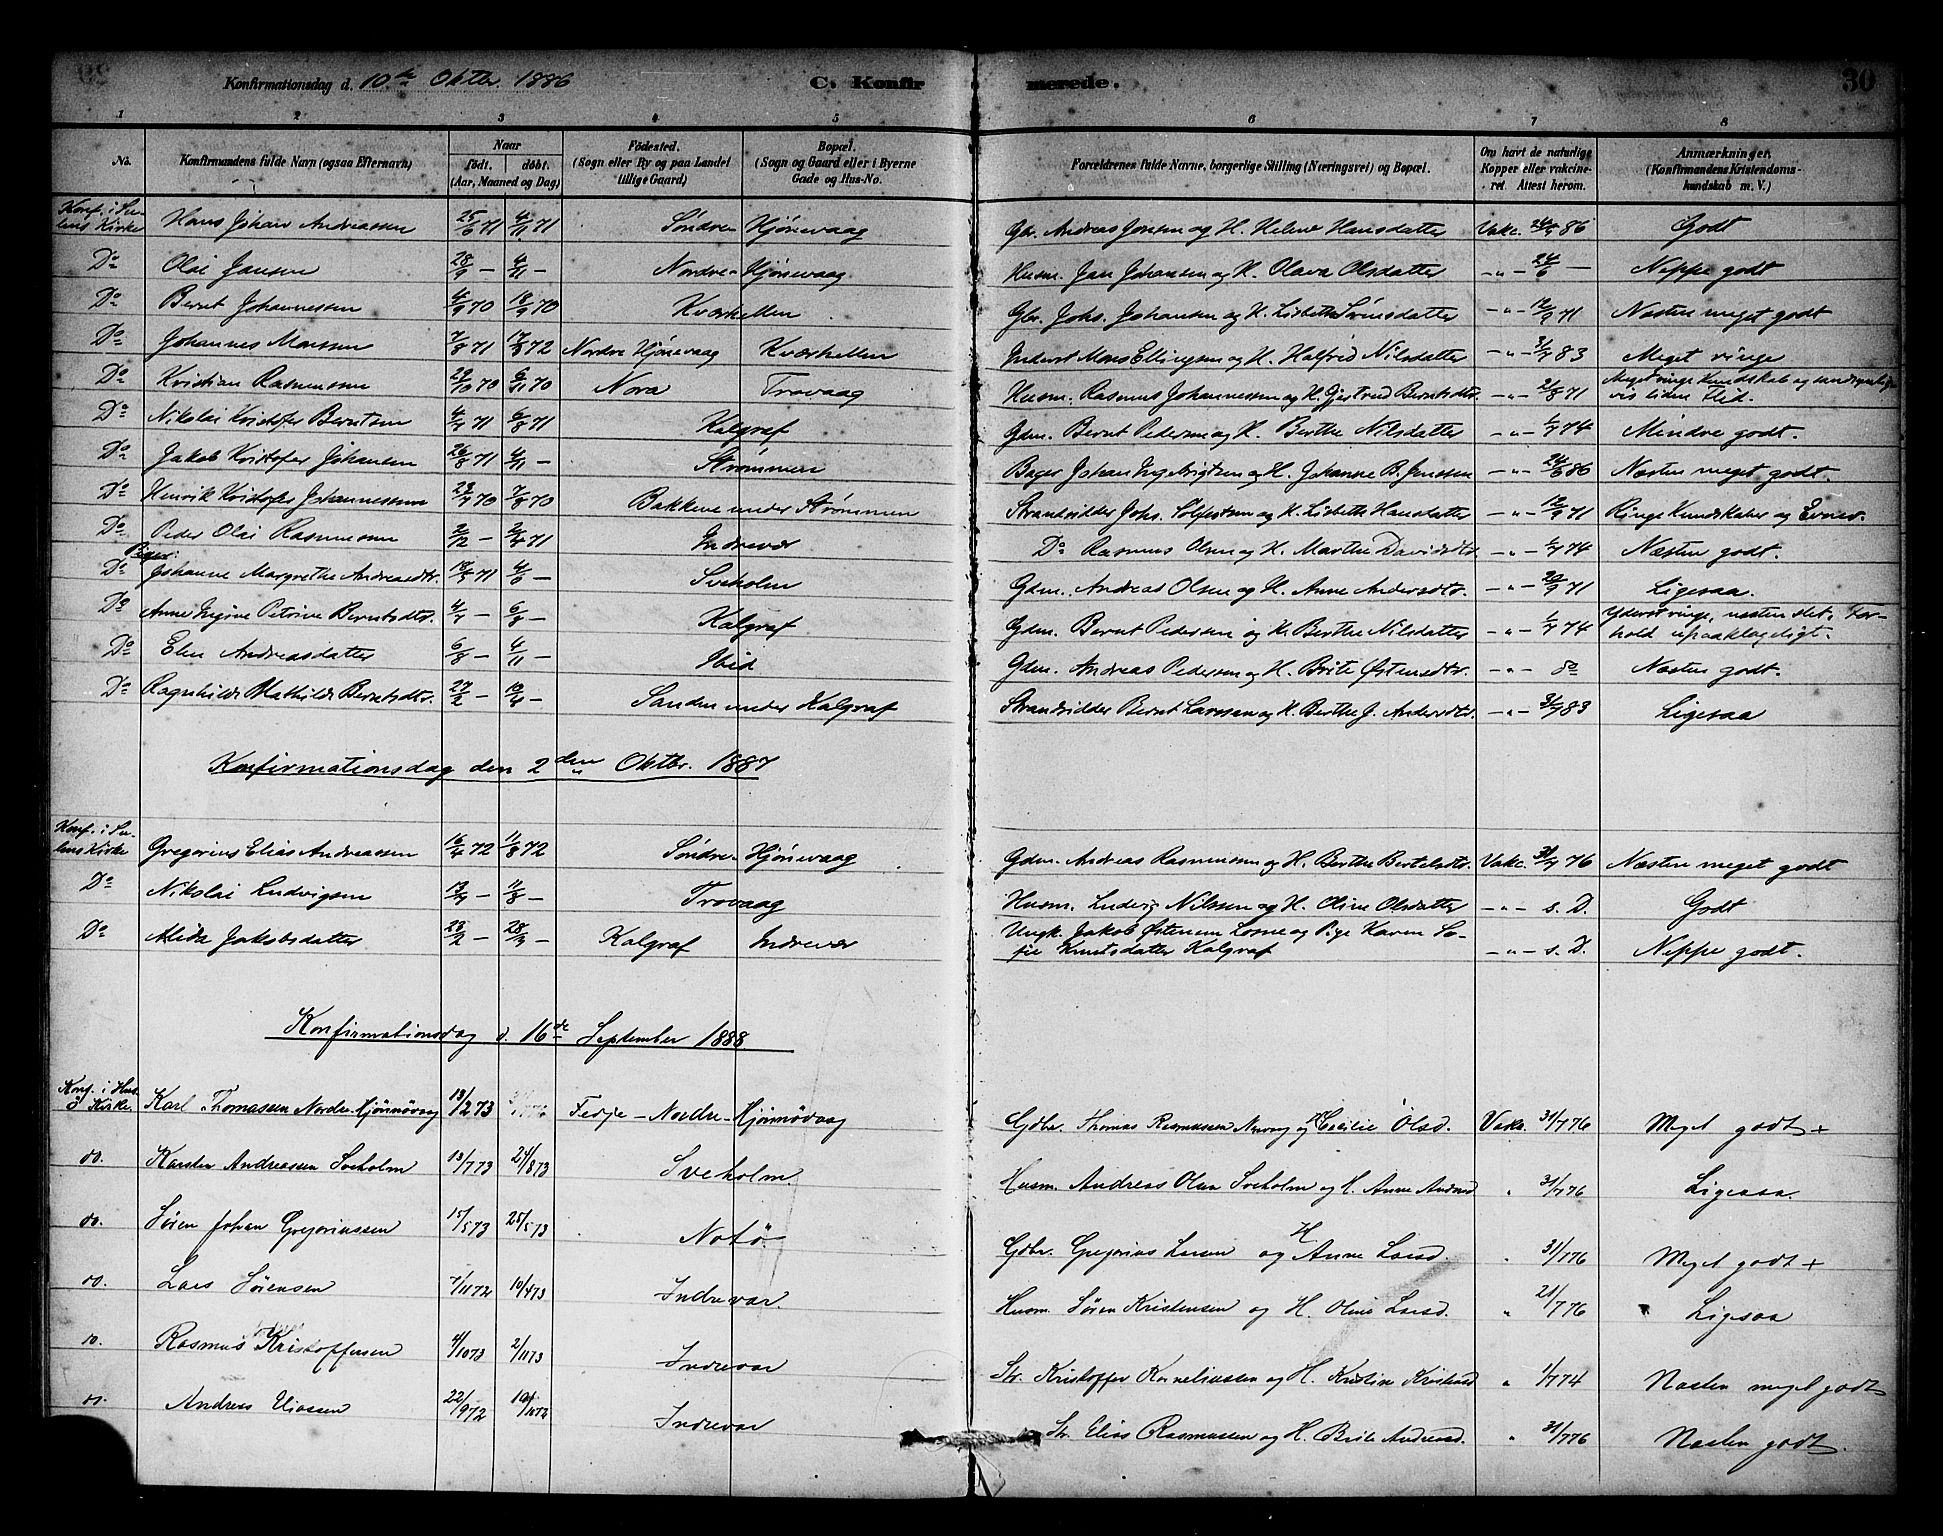 30
Konfirmationsdag d. 10de Oktbr. 1886 C. Konfirmerede.
1 2 3 4 5 6 7 8
No. Konfirmandens fulde Navn (ogsaa Efternavn) Naar født. døbt. (Aar, Maaned og Dag) Fødested. (Sogn eller By og paa Landet tillige Gaard) Bopæl. (Sogn og Gaard eller i Byerne Gade og Hus-No. Forældrenes fulde Navne, borgerlige Stilling (Næringsvei) og Bopæl. Om havt de naturlige Kopper eller vakcineret. Attest herom. Anmærkninger. (Konfirmandens Kristendomskundskab m. V.)
Konf. i Sulens Kirke Hans Johan Andreassen 25/6 71 4/11 71 Søndre Hjønevaag Gbr. Andreas Jonsen og H. Helene Hansdatter Vakc. 86 Godt
Do Olai Jansen 28/9 — 4/11 — Nordre Hjønevaag Husm. Jan Johansen og H. Olava Olsdatter — " — 24/6 — Neppe godt
Do Bernt Johannessen 4/9 70 18/9 70 Kværhellen Gbr. Johs. Johansen og H. Lisbeth Sørensdatter — " — 12/9 71 Næsten meget godt
Do Johannes Monsen 7/8 71 72 Nordre Hjønevaag Kværhellen Inderst Mons Ellingsen og H. Halfrid Nilsdatter — " — 31/7 83 Meget ringe
Do Kristian Rasmussen 29/10 70 6/11 70 Nora Trovaag Husm. Rasmus Johannessen og H. Gjertrud Berntsdtr. — " — 2/8 71 Meget ringe Kundskab og sandsynligvis liden Flid.
Do Nikolai Kristofer Berntsen 4/7 71 6/8 71 Kalgraf Gdm. Bernt Pedersen og H. Berthe Nilsdatter — " — 1/7 74 Mindre godt.
Do Jakob Kristofer Johansen 26/8 71 4/11 — Strømmen Bager Johan Ingebrigtsen og H. Johanne B. Jenssen — " — 24/6 86 Næsten meget godt.
Do Henrik Kristofer Johannessen 23/7 70 7/8 70 Bakkene under Strømmen Strandsidder Johs. Solfestsen og H. Lisbeth Hansdatter — " — 12/9 71 Ringe Kundskaber og Evner.
Do Peder Olai Rasmussen 2/12 — 71 Indrevær Do Rasmus Olsen og H. Marthe Davidsdtr. — " — 1/7 74 Næsten godt.
Piger:
Do Johanne Margrethe Andreasdtr. 18/5 71 4/6 — Sveholm Gdm. Andreas Olsen og H. Anne Andersdtr. — " — 20/9 71 Ligesaa.
Do Anne Regine Petrine Berntsdtr. 4/7 — 6/8 — Kalgraf Gdm. Bernt Pedersen og H. Berthe Nilsdatter — " — 1/7 74 Yderst ringe, næsten slet. Forhold upaaklageligt.
Do Elen Andreasdatter 6/8 — 4/11 — Ibid Gdm. Andreas Pedersen og H. Brite Østensdtr. — " — do Næsten godt.
Do Ragnhilda Mathilda Berntsdtr. 27/2 — 10/4 — Sanden under Kalgraf Strandsidder Bernt Larssen og H. Berthe J. Andersdtr. — " — 31/7 83 Ligesaa
Konfirmationsdag den 2den Oktbr. 1887
Konf. i Sulens Kirke Gregorius Elias Andreassen 16/4 72 11/8 72 Søndre Hjønevaag Gdm. Andreas Rasmussen og H. Berthe Bertelsdtr. Vakc. 31/7 76 Næsten meget godt
Do Nikolai Ludvigsen 13/7 — 11/8 — Trovaag Husm. Ludvig Nilssen og H. Oline Olsdatter — " — s. D. Godt
Do Alida Jakobsdatter 20/2 — 28/3 — Kalgraf Indrevær Ungk. Jakob Østensen Losne og Pige Karen Sofie Knutsdatter Kalgraf — " — s. D. Neppe godt.
Konfirmationsdag d. 16de September 1888
Konf. i Husø Kirke. Karl Thomassen Nordre Hjønnøvaag 13/12 73 Fedje — Nordre — Hjønnøvaag Gdbr. Thomas Rasmussen og H Cecilie Olsd. Vakc. 31/7 76 Meget godt +
do. Karsten Andreassen Sveholm 13/7 73 24/8 73 Sveholm. Husm. Andreas Olsen Sveholm og H. Anne Andersd " 31/7 76 Ligesaa.
do. Søren Johan Gregoriussen 15/5 73 25/5 73 Notø Gdbr. Gregorius Larsen og H Anne Larsd. " 31/7 76 Meget godt +
do. Lars Sørensen 7/11 72 10/4 73 Indrevær. Husm. Søren Kristensen og H. Oline Larsd. " 21/7 76 Ligesaa
do. Rasmus Kristoffersen 4/10 73 2/11 73 Indrevær Str. Kristoffer Korneliussen og H. Kristine Kristensd " 1/7 74 Næsten meget godt
do. Andreas Eliassen 22/9 72 Indrevær Str. Elias Rasmussen og H. Brite Andersd. " 31/7 76 Næsten godt.